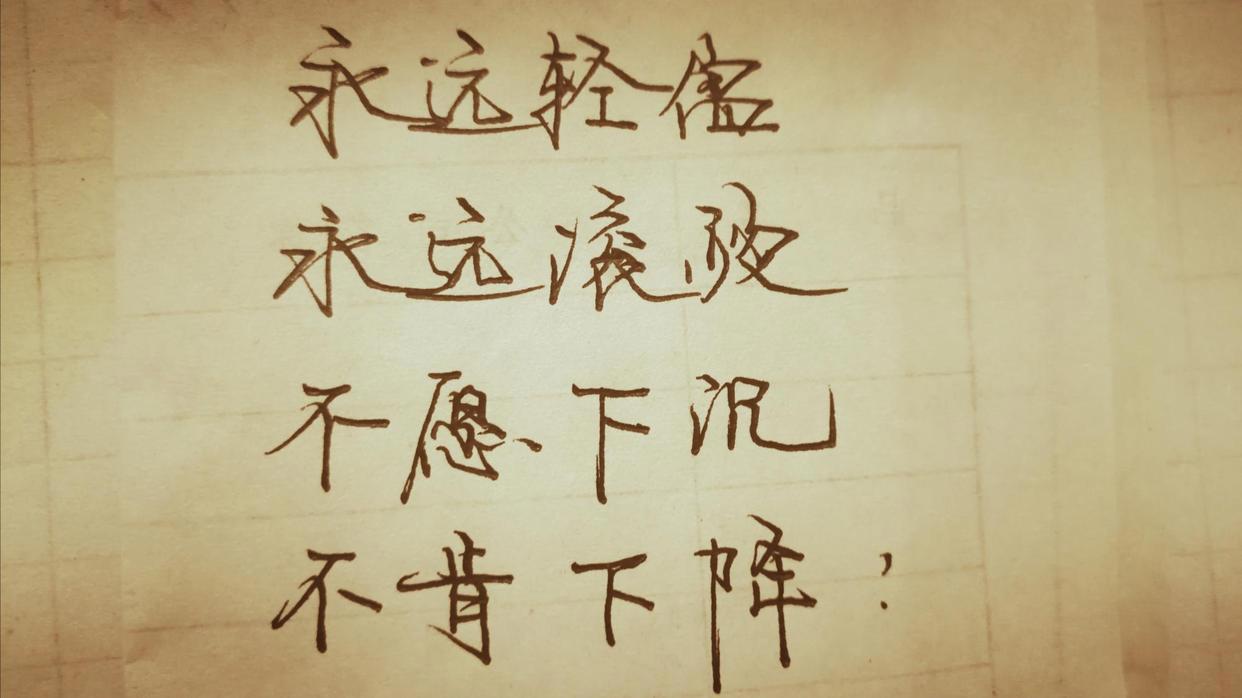 永远轻
永远
不愿下沉
不肯下降？